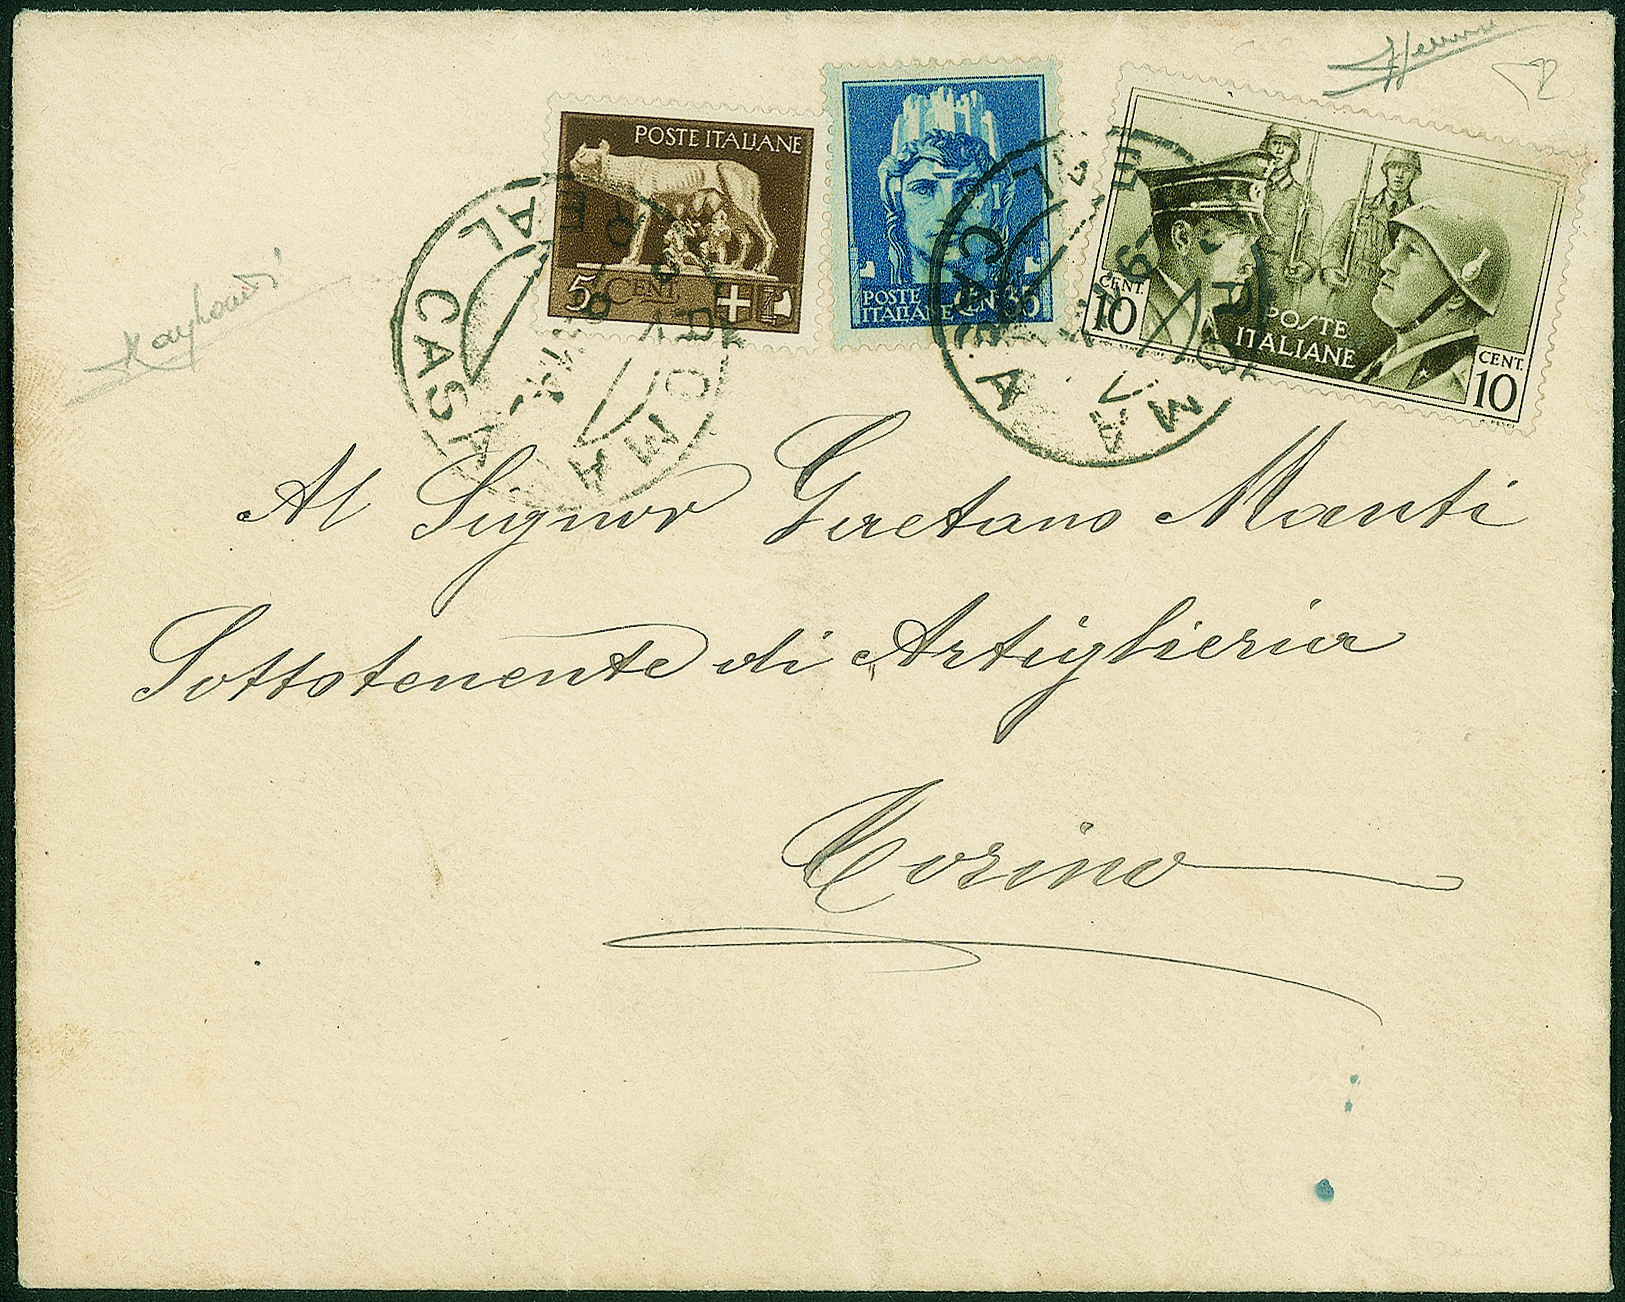 POSTE ITALIANE
5 CENT
POSTE
ITALIANE CENT 35
CENT.
10
POSTE
ITALIANE
CENT.
10
ROMA
REAL CASA
ROMA
REAL CASA
Al Signor Gaetano Manti
Sottotenente di Artiglieria
Torino